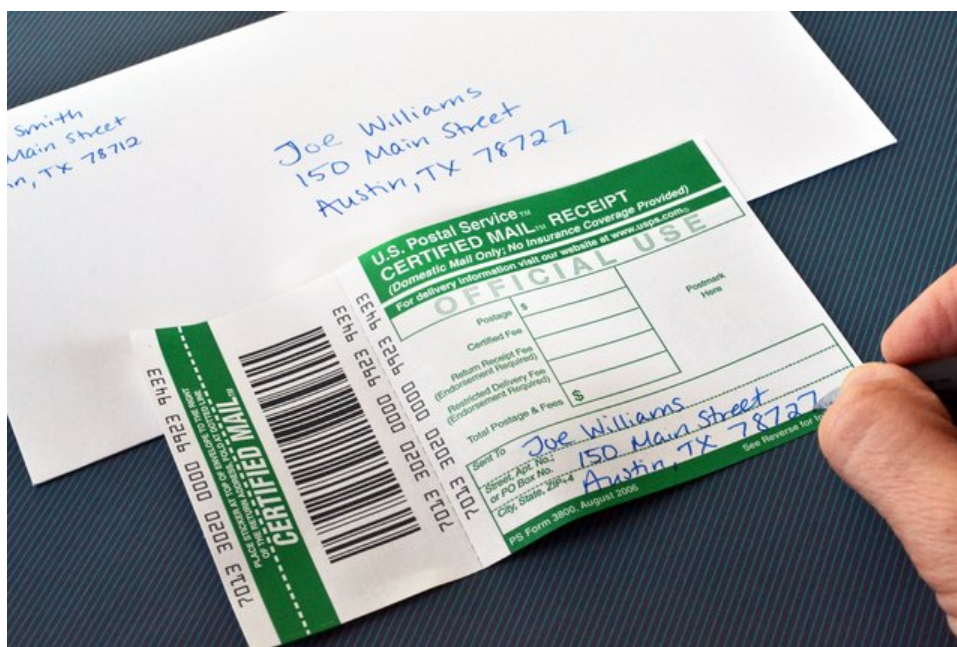 Smith
Main Street
in, TX 78712
Joe Williams
150 Main Street
Austin, TX 78727
U.S. Postal Service TM
CERTIFIED MAIL TM RECEIPT
(Domestic Mail Only; No Insurance Coverage Provided)
For delivery information visit our website at www.usps.com®
OFFICIAL USE
Postage $
Certified Fee
Return Receipt Fee
(Endorsement Required)
Restricted Delivery Fee
(Endorsement Required)
Total Postage & Fees $
Postmark
Here
Sent To Joe Williams
Street, Apt. No.;
or PO Box No. 150 Main Street
City, State, ZIP+4 Austin, TX 78727
PS Form 3800, August 2006
See Reverse for
7013 3020 0000 9923 9433
7013 3020 0000 9923 9433
CERTIFIED MAIL TM
PLACE STICKER AT TOP OF ENVELOPE TO THE RIGHT
OF THE RETURN ADDRESS, FOLD AT DOTTED LINE
7013 3020 0000 9923 9433